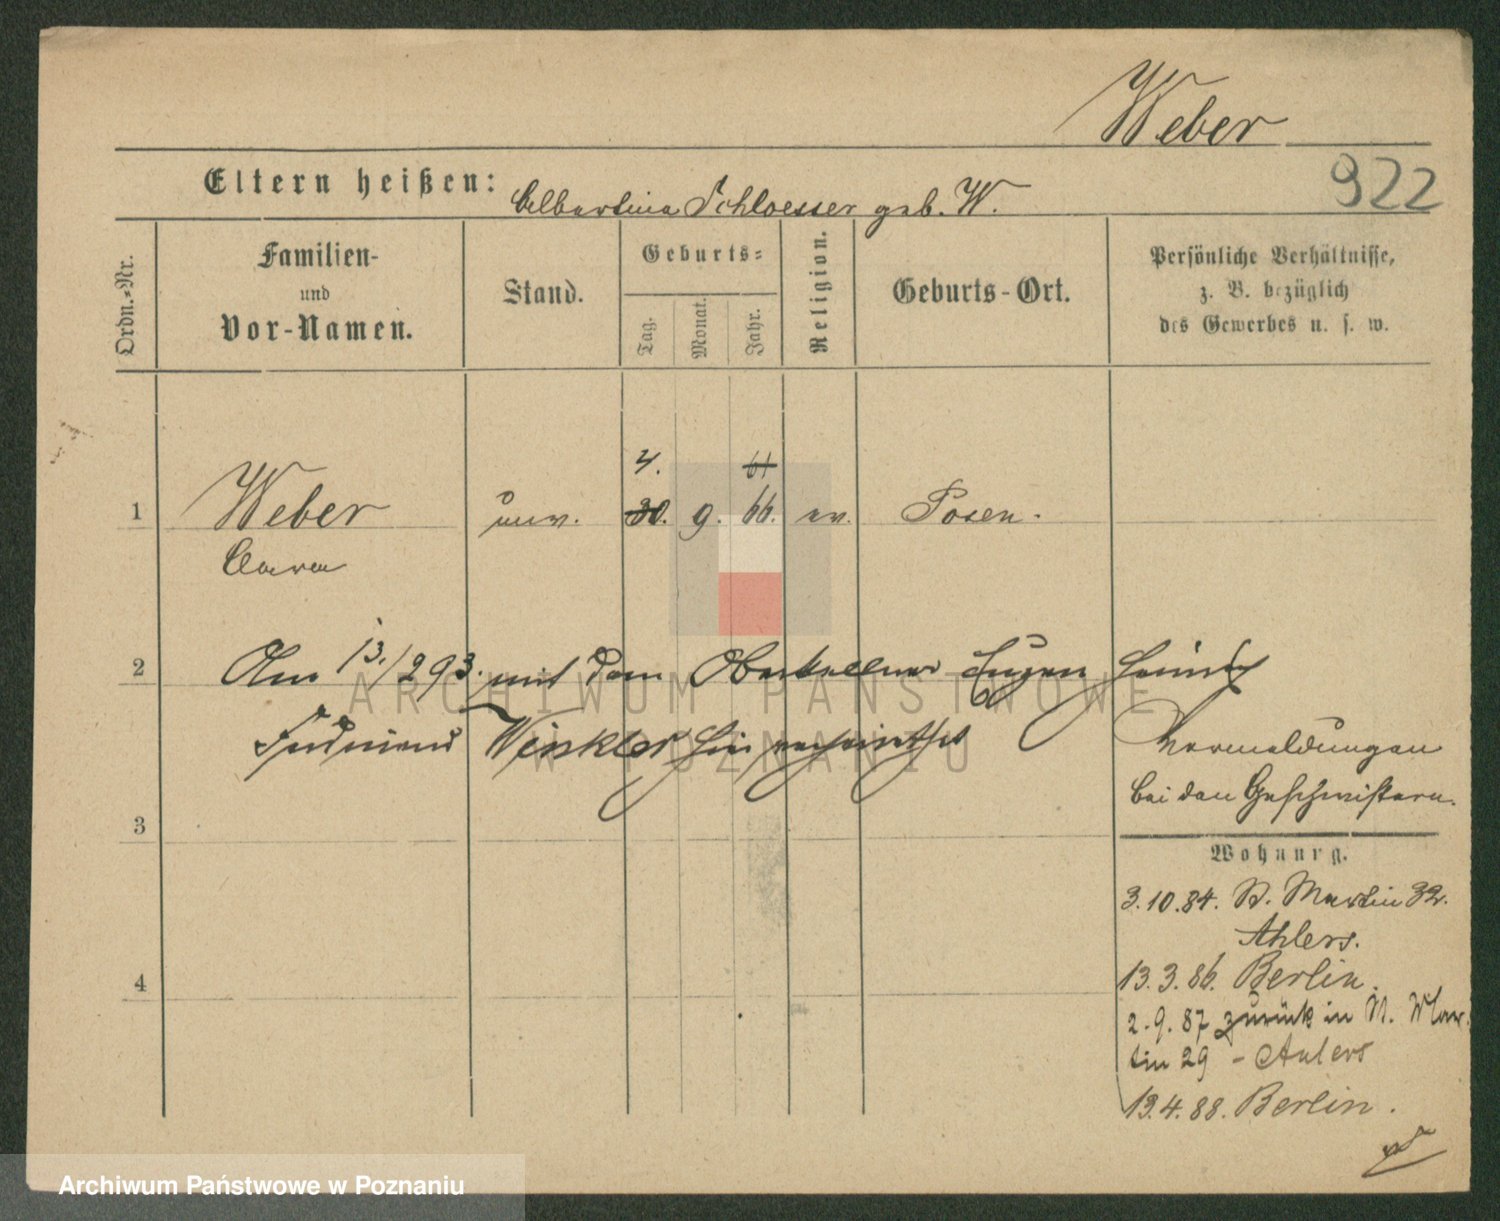 Weber
922
Eltern heißen: Albertina Schloesser geb. W.
Ordn.-Nr.
Familien-
und
Vor-Namen.
Stand.
Geburts-
Tag.
Monat.
Jahr.
Religion.
Geburts-Ort.
Persönliche Verhältnisse,
z. B. bezüglich
des Gewerbes u. s. w.
4. 61
1 Weber unv. 30. 9. 66. ev. Posen.
Clara
2 Am 13./2 93. mit dem Oberkellner Eugen
Ferdinand Winkler hier verheirathet
Vermeldungen
bei den Geschwistern.
3
Wohnung.
3.10.84. St. Martin 32.
Ahlers.
4
13.3.86. Berlin.
2.9.87 zurück in St. Mar-
tin 29 - Ahlers
13.4.88. Berlin.
ARCHIWUM PAŃSTWOWE
W POZNANIU
Archiwum Państwowe w Poznaniu